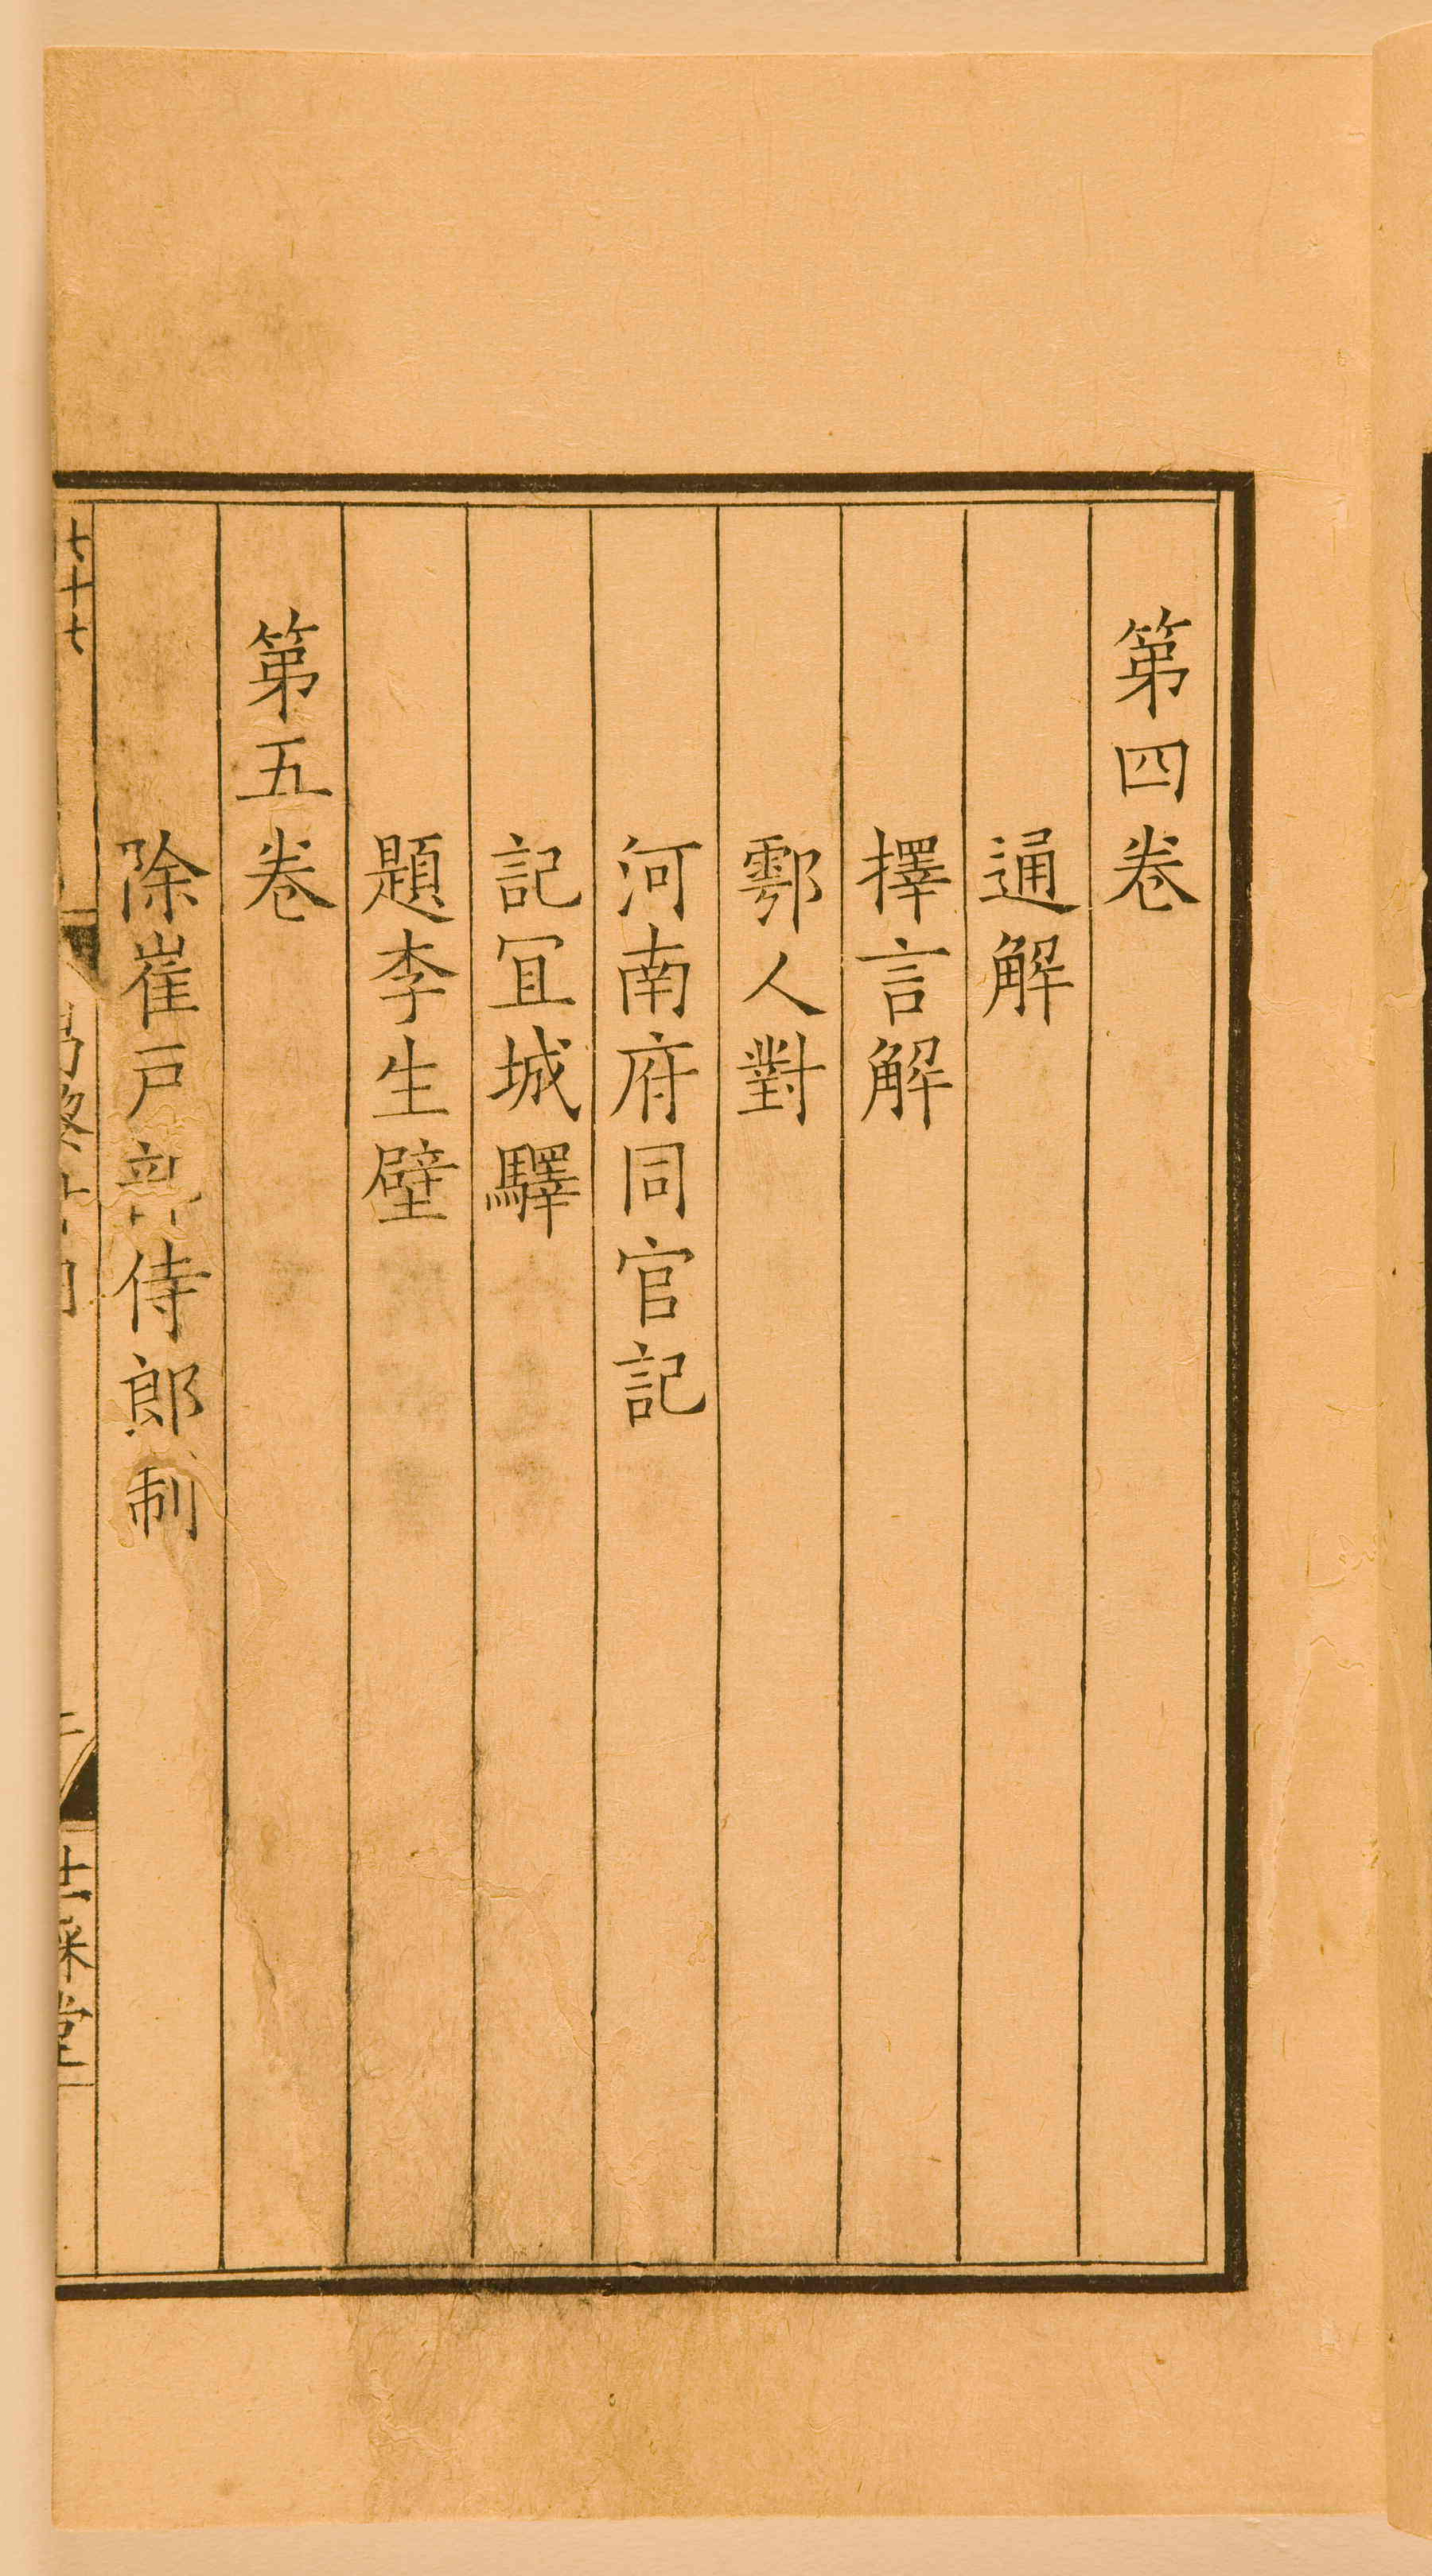 第四卷
通解
擇言解
鄠人對
河南府同官記
記冝城驛
題李生壁
第五卷
除崔戸部侍郎制
七十七